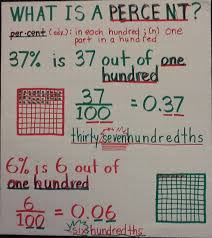 WHAT IS A PERCENT?
per·cent (adv.): in each hundred; (n) one
part in a hundred
37% is 37 out of one
hundred
37
100
= 0.37
thirty seven hundredths
6% is 6 out of
one hundred
6
100
= 0.06
six hundredths